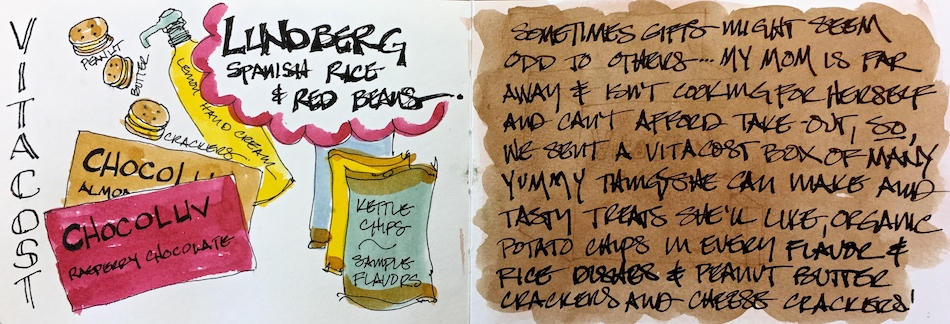 VITACOST
PEANUT
BUTTER
CRACKERS...
LEMON HAND CREAM
LUNDBERG
SPANISH RICE
& RED BEANS
CHOCOLUV
ALMO
CHOCOLUV
RASPBERRY CHOCOLATE
KETTLE
CHIPS
~
SAMPLE
FLAVORS
SOMETIMES GIFTS MIGHT SEEM
ODD TO OTHERS... MY MOM IS FAR
AWAY & ISN'T COOKING FOR HERSELF
AND CAN'T AFFORD TAKE-OUT, SO,
WE SENT A VITACOST BOX OF MANY
YUMMY THINGS SHE CAN MAKE AND
TASTY TREATS SHE'LL LIKE, ORGANIC
POTATO CHIPS IN EVERY FLAVOR &
RICE DISHES & PEANUT BUTTER
CRACKERS AND CHEESE CRACKERS!